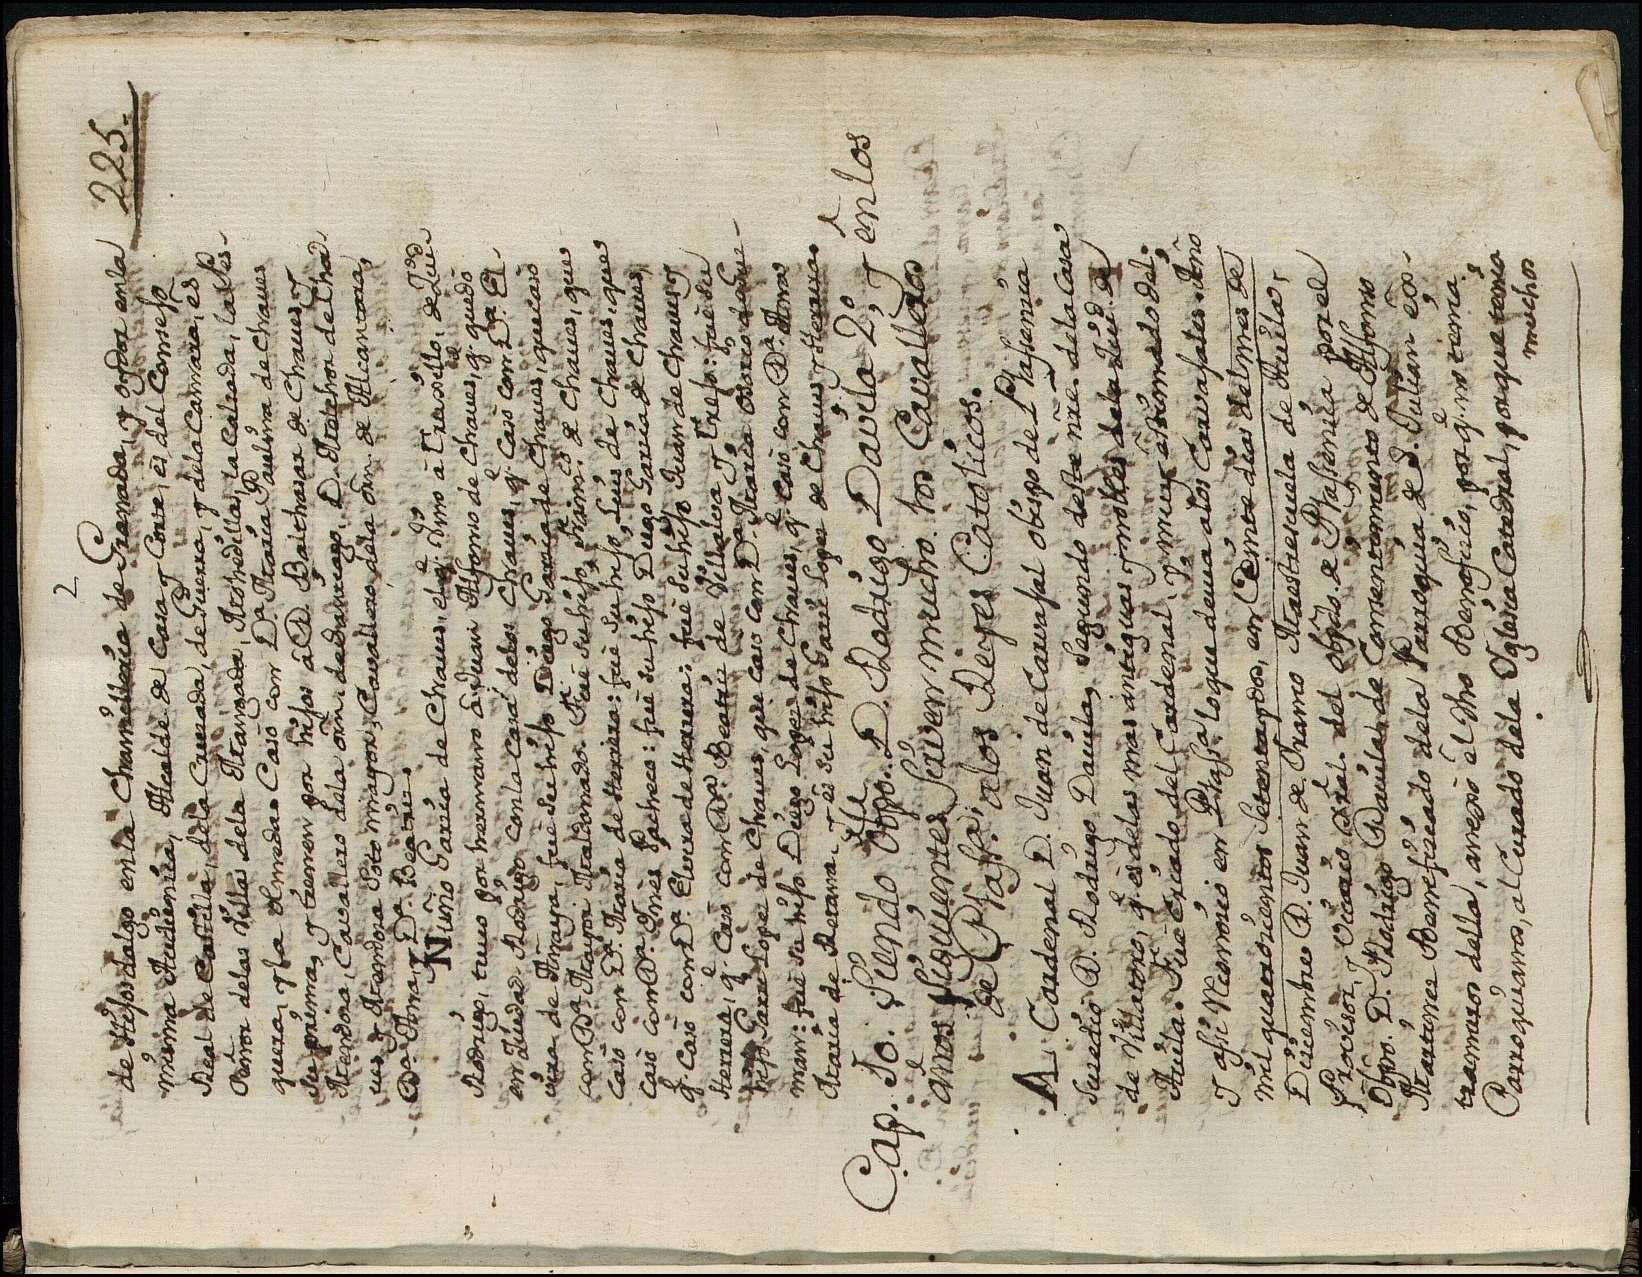 2
225.
de Hijosdalgo en la Chancilleria de Granada, y oydor en la
misma Audiencia, Alcalde de Casa y Corte, es del Consejo
Real de Castilla, de la Cruzada, de Guerra, y de la Camara, es
Señor de las Villas de la la Calzada, la Hes-
quera, y la Olmeda. Casó con Dª. Maria Paulina de Chaues
su prima, y tienen por hijos à D. Balthasar de Chaues, y
Mendoza, Cauallero de la ôrn de Santiago, D. Melchor de Cha-
ues y Mendoza Soto mayor, Cauallero de la ôrn. de Alcantara,
Dª. Ana, y Dª. Beatriz.
Nuño Garcia de Chaues, el q̃. Vino à Truxillo, de Ciudad
Rodrigo, tuuo por hermano à Juan Alfonso de Chaues, q̃. quedò
en Ciudad Rodrigo con la Casa delos Chaues, q̃. Casò con Dª. El-
uira de Anaya, fue su hijo Diego Garcia de Chaues, que casò
con Dª. Mayor Maldonado. Fue su hijo Franᶜᵒ. de Chaues, que
casò con Dª. Maria de Herrera: fue su hijo Luis de Chaues, que
casò con Dª. Ines Pacheco: fue su hijo Diego Garcia de Chaues,
q̃. Casò con Dª. Eluira de Herrera: fue su hijo Juan de Chaues, y
Herrera, q̃. Casò con Dª. Beatriz de Villalua, y Trejo: fue su
hijo Garci Lopez de Chaues, que casò con Dª. Maria Osorio de Guz-
man: fue su hijo Diego Lopez de Chaues, q̃. Casò con Dª. Ana
Maria de Herrera, y es su hijo Garci Lopez de Chaues y Herrera.
Cap. 10. Siendo Obpo. D. Rodrigo Dauila 2º, y en los
años siguientes siruen mucho los Caualleros
de Plasa. à los Reyes Catolicos.
Al Cardenal D. Juan de Caruajal obispo de Plasencia
sucediò D. Rodrigo Dauila, segundo deste nõre. de la Casa
de Villatoro, q̃. es de las mas antiguas y nobles de la Ciud. de
Auila. Fue Criado del Cardenal, y muy
Y assi Reconociò en Plasª. lo que deuia a los Caruajales. Año
mil quatrocientos setenta y dos, en Veinte dias del mes de
Diziembre D. Juan de Maestrescuela de Auila,
Prouisor, y Vicario del obpdo. de Plasencia por el
Obpo. D. Rodrigo Dauila, de Consentimiento de Alfonso
Martinez Beneficiado de la Parroquia de S. Julian ex-
tramuros della, anexò el dho Beneficio, por q̃. no tenia
Parroquianos, al Curado de la Yglesia Catedral, porque tenia
muchos